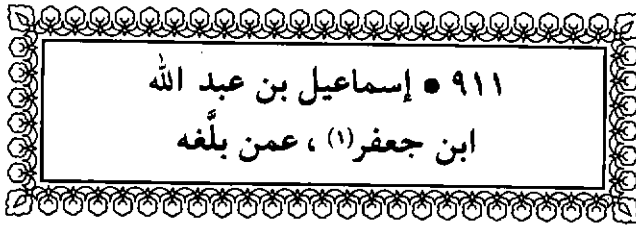 ٩١١ • إسماعيل بن عبد الله
ابن جعفر(١) ، عمن بلَّغه